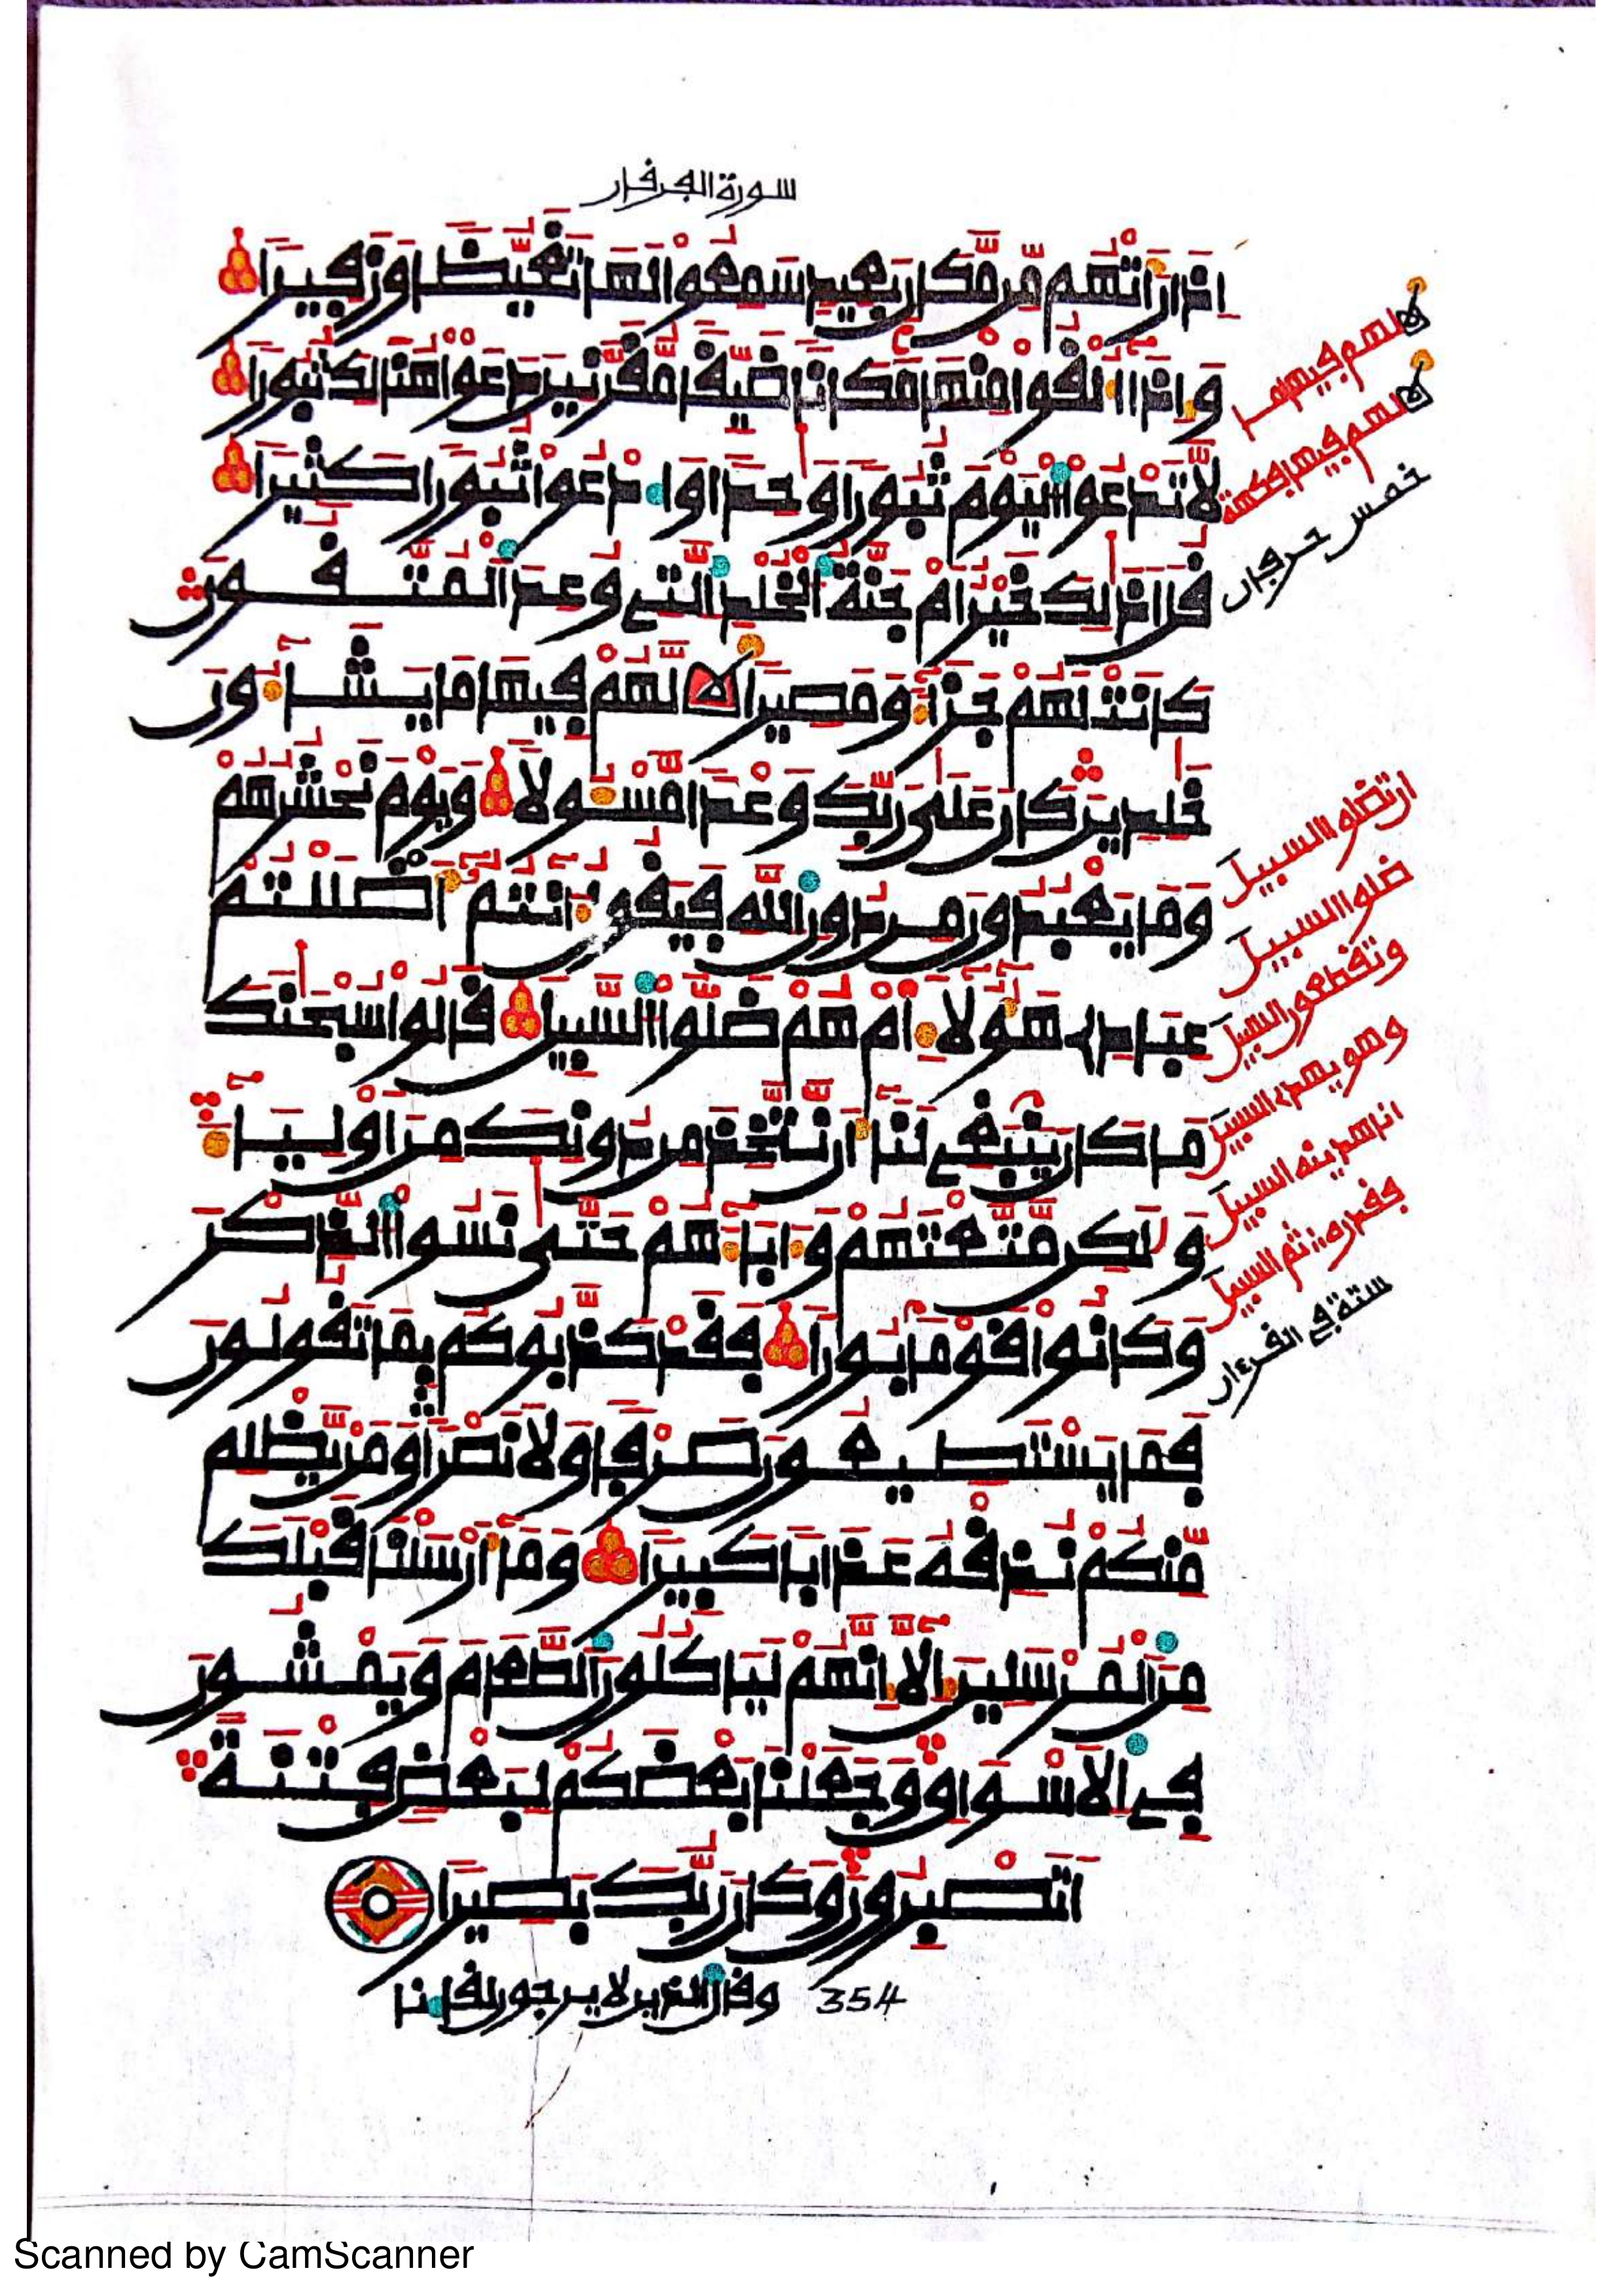 سورة الفرقان
إِذَا رَأَتْهُم مِّن مَّكَانٍ بَعِيدٍ سَمِعُواْ لَهَا تَغَيُّظًا وَزَفِيرًا
وَإِذَا أُلْقُواْ مِنْهَا مَكَانًا ضَيِّقًا مُّقَرَّنِينَ دَعَوْاْ هُنَالِكَ ثُبُورًا
لَّا تَدْعُواْ الْيَوْمَ ثُبُورًا وَٰحِدًا وَادْعُواْ ثُبُورًا كَثِيرًا
قُلْ أَذَٰلِكَ خَيْرٌ أَمْ جَنَّةُ الْخُلْدِ الَّتِي وُعِدَ الْمُتَّقُونَ
كَانَتْ لَهُمْ جَزَاءً وَمَصِيرًا لَّهُمْ فِيهَا مَا يَشَاءُونَ
خَٰلِدِينَ كَانَ عَلَىٰ رَبِّكَ وَعْدًا مَّسْـُٔولًا وَيَوْمَ نَحْشُرُهُمْ
وَمَا يَعْبُدُونَ مِن دُونِ اللَّهِ فَيَقُولُ ءَانتُمُ أَضْلَلْتُمْ
عِبَادِي هَٰؤُلَاءِ أَمْ هُمْ ضَلُّواْ السَّبِيلَ قَالُواْ سُبْحَٰنَكَ
مَا كَانَ يَنبَغِي لَنَا أَن نَّتَّخِذَ مِن دُونِكَ مِنَ اوْلِيَاءَ
وَلَٰكِن مَّتَّعْتَهُمْ وَءَابَاءَهُمْ حَتَّىٰ نَسُواْ الذِّكْرَ
وَكَانُواْ قَوْمًا بُورًا فَقَدْ كَذَّبُوكُم بِمَا تَقُولُونَ
فَمَا يَسْتَطِيعُونَ صَرْفًا وَلَا نَصْرًا وَمَن يَظْلِم
مِّنكُمْ نُذِقْهُ عَذَابًا كَبِيرًا وَمَا أَرْسَلْنَا قَبْلَكَ
مِنَ الْمُرْسَلِينَ إِلَّا إِنَّهُمْ لَيَاكُلُونَ الطَّعَامَ وَيَمْشُونَ
فِي الْأَسْوَاقِ وَجَعَلْنَا بَعْضَكُمْ لِبَعْضٍ فِتْنَةً
أَتَصْبِرُونَ وَكَانَ رَبُّكَ بَصِيرًا
وقال الذين لا يرجون لقاءنا 354
لهم فيها ما
لهم فيها فكهة
خمس حرفان
ان تضلوا السبيل
ضلوا السبيل
وتقطعون السبيل
وهو يهدي السبيل
انا هدينه السبيل
ثم السبيل
ستة في القرءان
Scanned by CamScanner